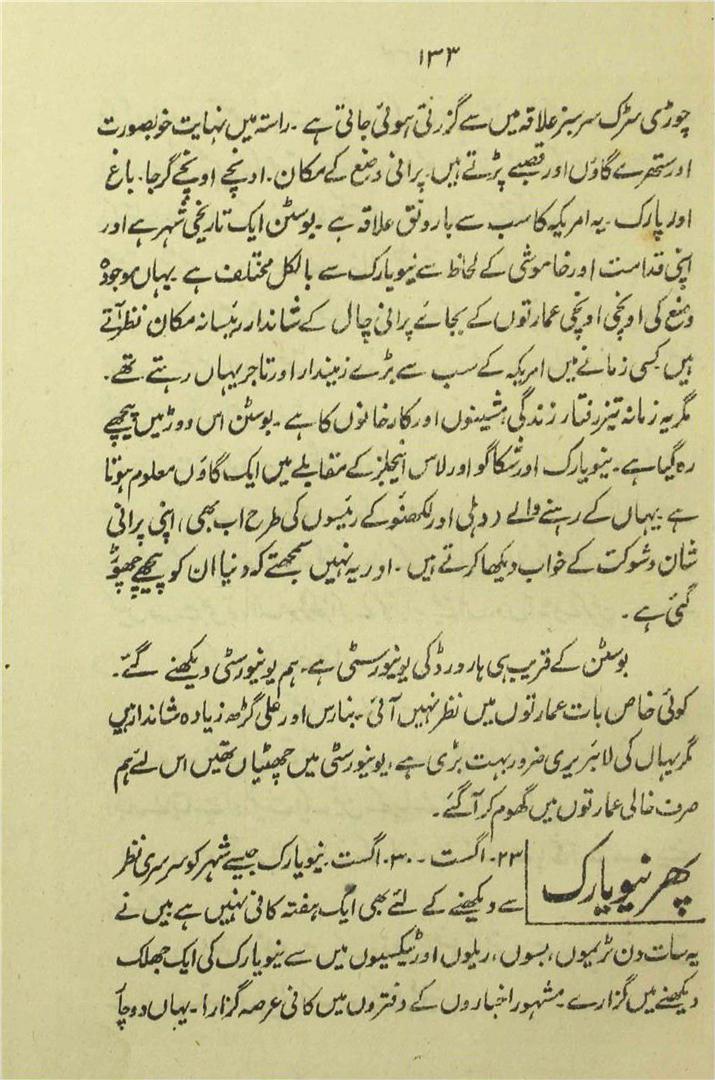 ۱۳۳
چوڑی سڑک سرسبز علاقہ میں سے گزرتی ہوئی جاتی ہے ۔ راستہ میں نہایت خوبصورت
اور ستھرے گاؤں اور قصبے پڑتے ہیں۔ پرانی وضع کے مکان ۔ اونچے اونچے گرجا ۔ باغ
اور پارک ۔ یہ امریکہ کا سب سے بارونق علاقہ ہے ۔ بوسٹن ایک تاریخی شہر ہے اور
اپنی قدامت اور خاموشی کے لحاظ سے نیویارک سے بالکل مختلف ہے یہاں موجودہ
وضع کی اونچی اونچی عمارتوں کے بجائے پرانی چال کے شاندار رئیسانہ مکان نظر آتے
ہیں کسی زمانے میں امریکہ کے سب سے بڑے زمیندار اور تاجر یہاں رہتے تھے ۔
مگر یہ زمانہ تیز رفتار زندگی ، مشینوں اور کارخانوں کا ہے ۔ بوسٹن اس دوڑ میں پیچھے
رہ گیا ہے ۔ نیویارک اور شکاگو اور لاس اینجلز کے مقابلے میں ایک گاؤں معلوم ہوتا
ہے یہاں کے رہنے والے دہلی اور لکھنؤ کے رئیسوں کی طرح اب بھی ، اپنی پرانی
شان و شوکت کے خواب دیکھا کرتے ہیں ۔ اور یہ نہیں سمجھتے کہ دنیا ان کو پیچھے چھوڑ
گئی ہے ۔
بوسٹن کے قریب ہی ہارورڈ کی یونیورسٹی ہے ۔ ہم یونیورسٹی دیکھنے گئے ۔
کوئی خاص بات عمارتوں میں نظر نہیں آئی ۔ بنارس اور علی گڑھ زیادہ شاندار ہیں
مگر یہاں کی لائبریری ضرور بہت بڑی ہے ، یونیورسٹی میں چھٹیاں تھیں اس لئے ہم
صرف خالی عمارتوں میں گھوم کر آگئے ۔
پھر نیویارک
۲۳۔ اگست ۔ ۳۰۔ اگست ۔ نیویارک جیسے شہر کو سرسری نظر
سے دیکھنے کے لئے بھی ایک ہفتہ کافی نہیں ہے میں نے
یہ سات دن ٹریموں ، بسوں ، ریلوں اور ٹیکسیوں میں سے نیویارک کی ایک جھلک
دیکھنے میں گزارے ۔ مشہور اخباروں کے دفتروں میں کافی عرصہ گزارا ۔ یہاں دو چار